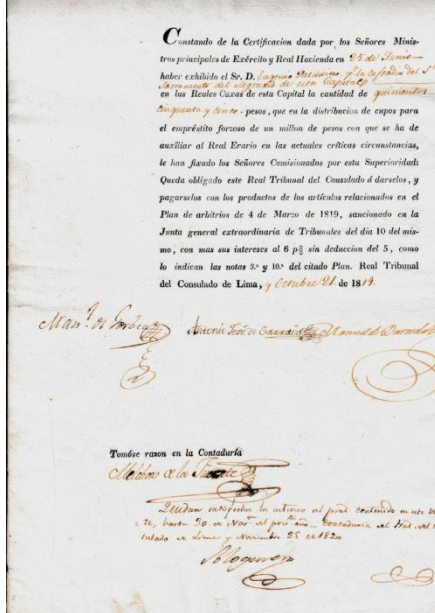 Constando de la Certificacion dada por los Señores Minis-
tros principales de Exército y Real Hacienda en 25 de Junio
haber exhibido el Sr. D. Eugenio por la cofradia del
Sacramento del Sagrario de esta Capital
en las Reales Caxas de esta Capital la cantidad de quinientos
cinquenta y cinco- pesos, que en la distribucion de cupos para
el empréstito forzoso de un millon de pesos con que se ha de
auxiliar al Real Erario en las actuales críticas circunstancias,
le han fixado los Señores Comisionados por esta Superioridad:
Queda obligado este Real Tribunal del Consulado á darselos, y
pagarselos con los productos de los artículos relacionados en el
Plan de arbitrios de 4 de Marzo de 1819, sancionado en la
Junta general extraordinaria de Tribunales del dia 10 del mis-
mo, con mas sus intereses al 6 p% sin deduccion del 5, como
lo indican las notas 9.ª y 10.ª del citado Plan. Real Tribunal
del Consulado de Lima, y Octubre 21 de 1819.
Man.l de Gorbea
Antonio José de Sarraoa Manuel de
Tomóse razon en la Contaduría
Melchor de la Fuente
Quedan satisfechos los intereses del contenido en este
hasta 30 de Nov.e del año Contaduria del Tral. del
sulado de Lima y Noviembre 25 de 1820